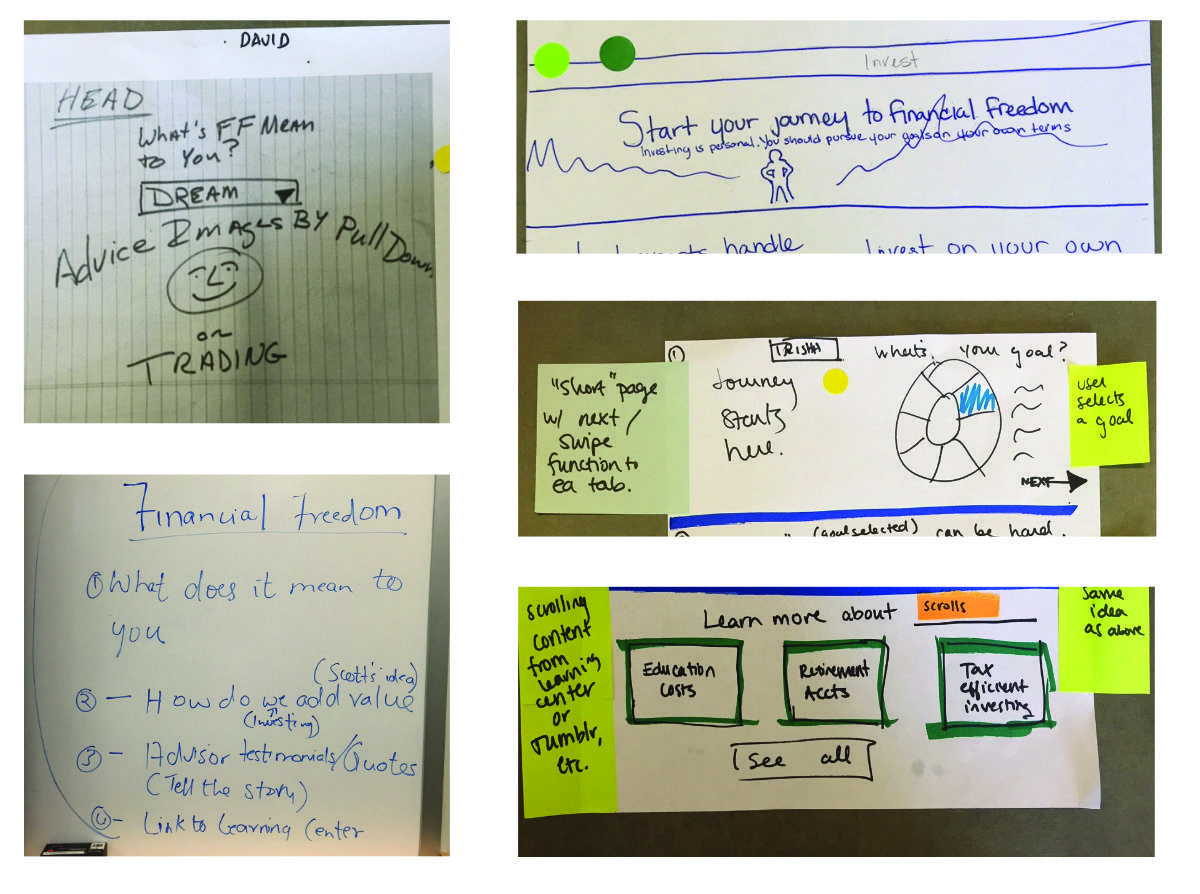 DAVID
HEAD
What's FF Mean
to You?
DREAM
Advice Images By Pull Down
or
TRADING
Invest
Start your journey to financial freedom
Investing is personal. You should pursue your goals on your own terms
handle
Invest on your own
"short" page
w/ next /
swipe
function to
ea tab.
①
TRISHA
What's your goal?
Journey
starts
here.
user
selects
a goal
NEXT
(goal selected) can be hard.
Financial Freedom
① What does it mean to
you
(Scott's idea)
② - How do we add value
(Investing)
③ - Advisor testimonials/Quotes
(Tell the story)
④ - Link to Learning Center
scrolling
content
from
learning
center
or
Tumblr,
etc.
Learn more about
scrolls
Same
idea
as above
Education
costs
Retirement
Accts
Tax
efficient
investing
See all